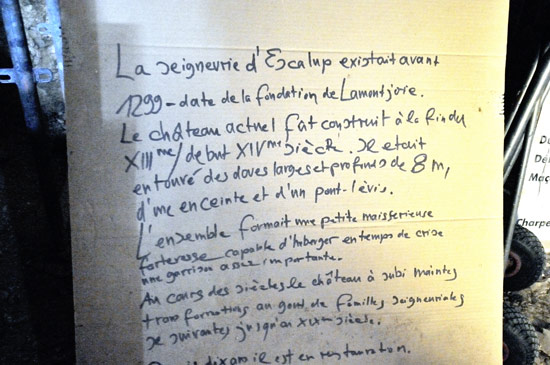 La seigneurie d'Escalup existait avant
1299 - date de la fondation de Lamontjoie.
Le château actuel fût construit à la fin du
XIIIme/début XIVme siècle. Il etait
entouré des doves larges et profonds de 8 m,
d'une enceinte et d'un pont-levis.
L'ensemble formait une petite mais serieuse
forteresse capable d'huberger en temps de crise
une garrison assez importante.
Au cours des siècles le château à subi maintes
transformations au gout de familles seigneuriales
se suivantes jusqu'au XIXme siècle.
dix ans il est en restauration.
Maço
Charpe